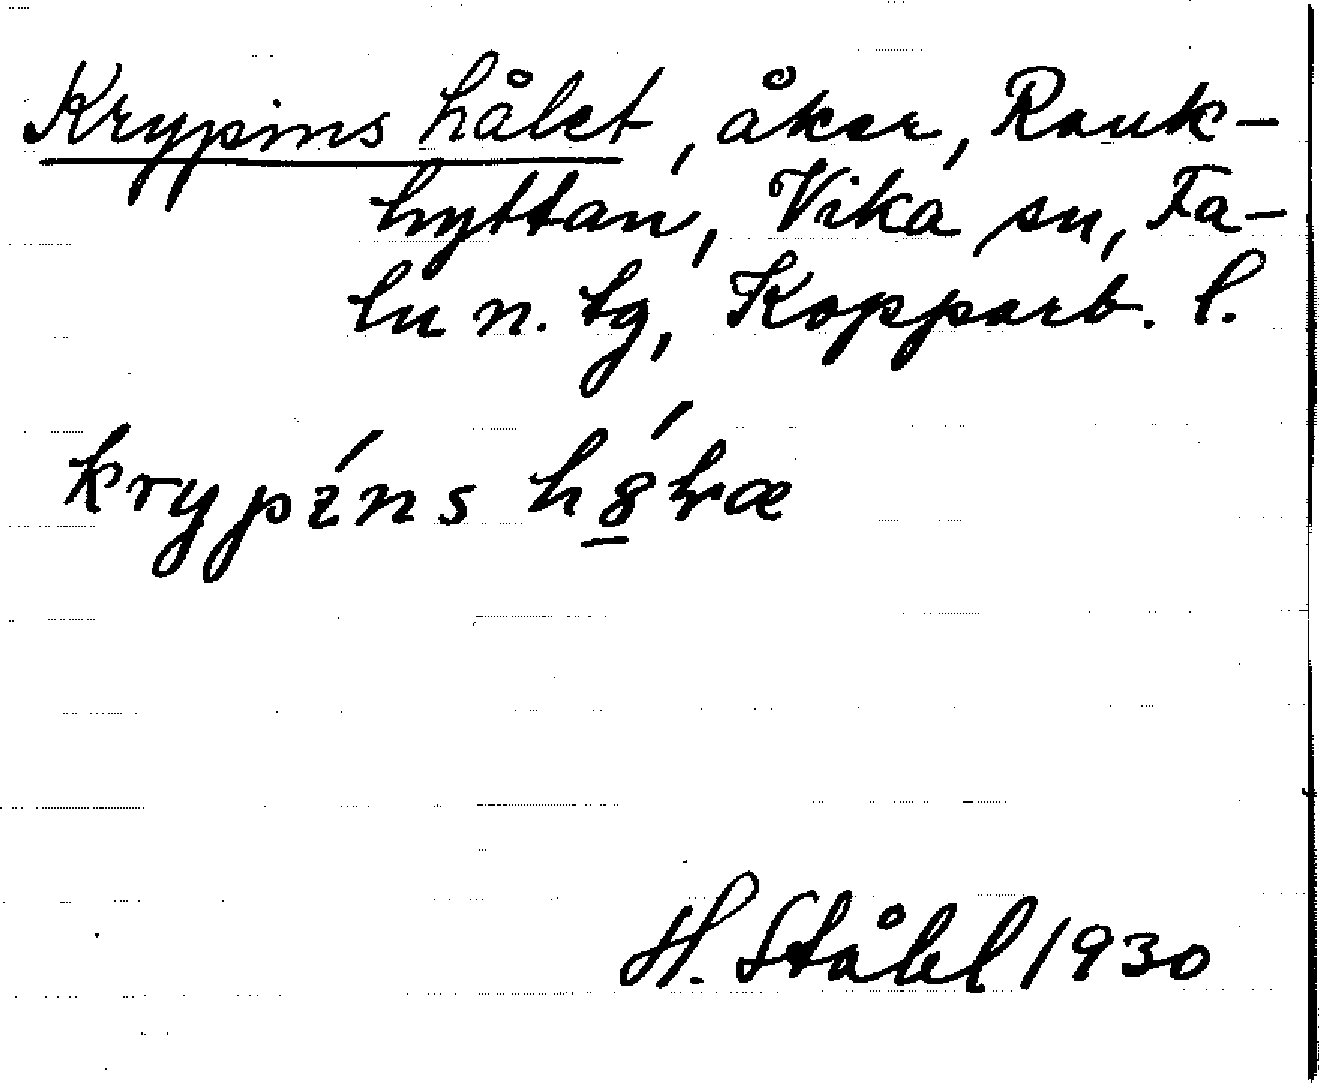 Krypins hålet, åker, Rank-
hyttan, Vika sn, Fa-
lu n. tg, Kopparb. l.
krypíns
H. Ståhl 1930